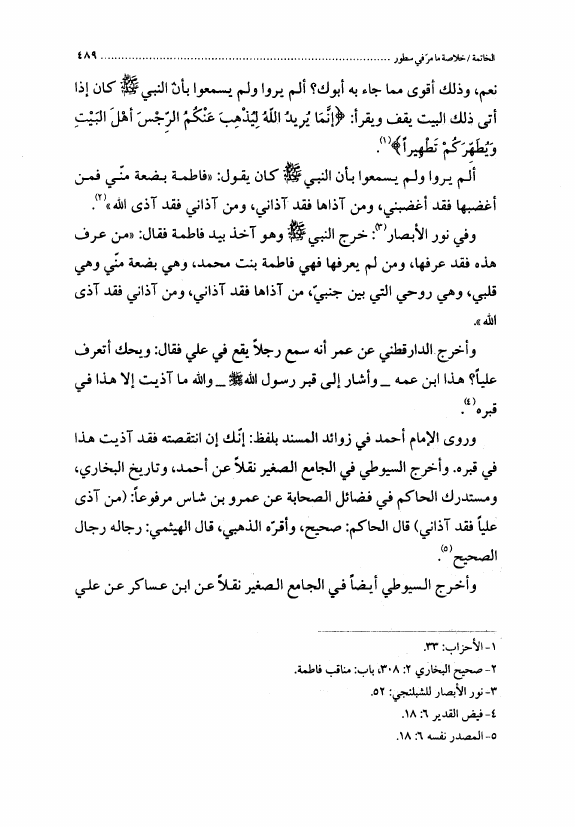 الخاتمة / خلاصة ما مرّ في سطور ........................................................................ ٤٨٩
نعم، وذلك أقوى مما جاء به أبوك؟ ألم يروا ولم يسمعوا بأن النبي ﷺ كان إذا
أتى ذلك البيت يقف ويقرأ: ﴿إنَّمَا يُرِيدُ اللَّهُ لِيُذْهِبَ عَنْكُمُ الرِّجْسَ أَهْلَ البَيْتِ
وَيُطَهِّرَكُمْ تَطْهِيراً﴾(١).
ألم يروا ولم يسمعوا بأن النبي ﷺ كان يقول: «فاطمة بضعة منّي فمن
أغضبها فقد أغضبني، ومن آذاها فقد آذاني، ومن آذاني فقد آذى الله»(٢).
وفي نور الأبصار(٣): خرج النبي ﷺ وهو آخذ بيد فاطمة فقال: «من عرف
هذه فقد عرفها، ومن لم يعرفها فهي فاطمة بنت محمد، وهي بضعة منّي وهي
قلبي، وهي روحي التي بين جنبيّ، من آذاها فقد آذاني، ومن آذاني فقد آذى
الله».
وأخرج الدارقطني عن عمر أنه سمع رجلاً يقع في علي فقال: ويحك أتعرف
علياً؟ هذا ابن عمه _ وأشار إلى قبر رسول الله ﷺ _ والله ما آذيت إلا هذا في
قبره(٤).
وروى الإمام أحمد في زوائد المسند بلفظ: إنّك إن انتقصته فقد آذيت هذا
في قبره. وأخرج السيوطي في الجامع الصغير نقلاً عن أحمد، وتاريخ البخاري،
ومستدرك الحاكم في فضائل الصحابة عن عمرو بن شاس مرفوعاً: (من آذى
علياً فقد آذاني) قال الحاكم: صحيح، وأقرّه الذهبي، قال الهيثمي: رجاله رجال
الصحيح(٥).
وأخرج السيوطي أيضاً في الجامع الصغير نقلاً عن ابن عساكر عن علي
١- الأحزاب: ٣٣.
٢- صحيح البخاري ٢: ٣٠٨، باب: مناقب فاطمة.
٣- نور الأبصار للشبلنجي: ٥٢.
٤- فيض القدير ٦: ١٨.
٥- المصدر نفسه ٦: ١٨.